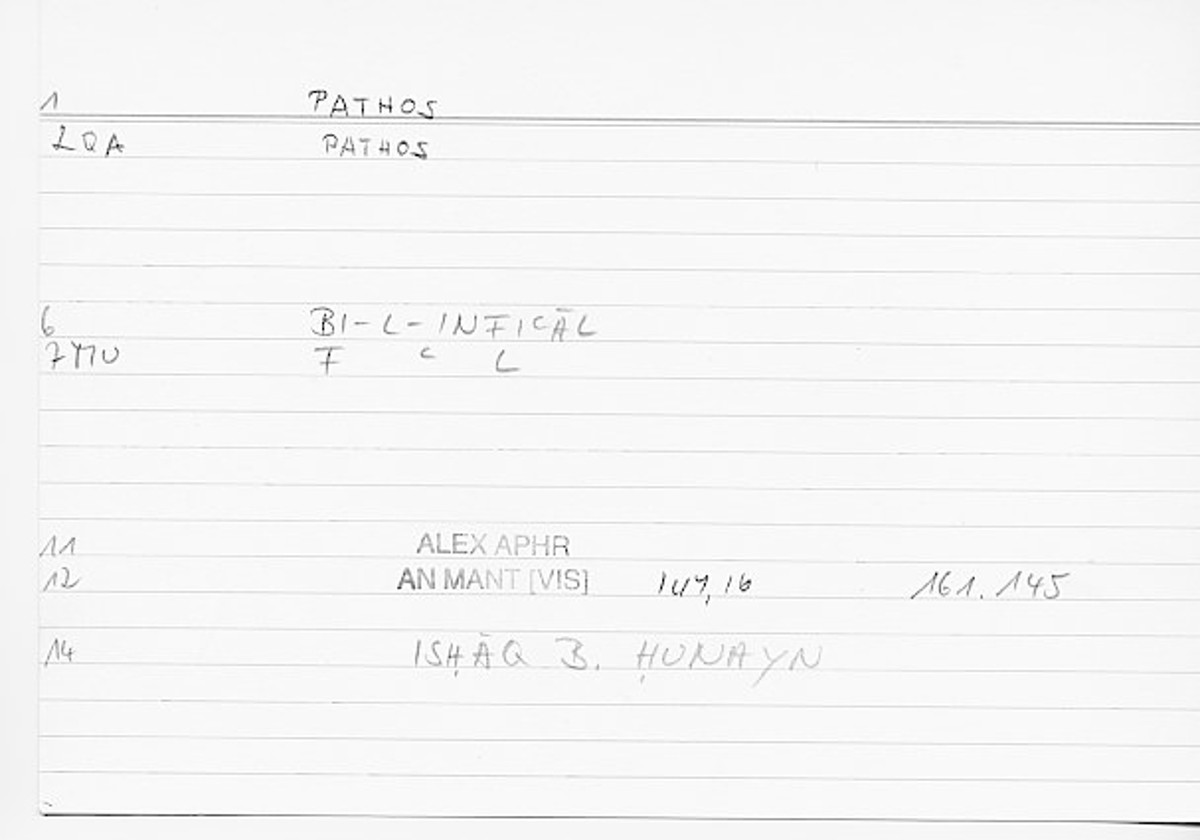 1 PATHOS
2QA PATHOS
6 BI-L-INFIʿĀL
7MU F ʿ L
11 ALEX APHR
12 AN MANT [VIS] 147,16 161.145
14 ISḤĀQ B. ḤUNAYN